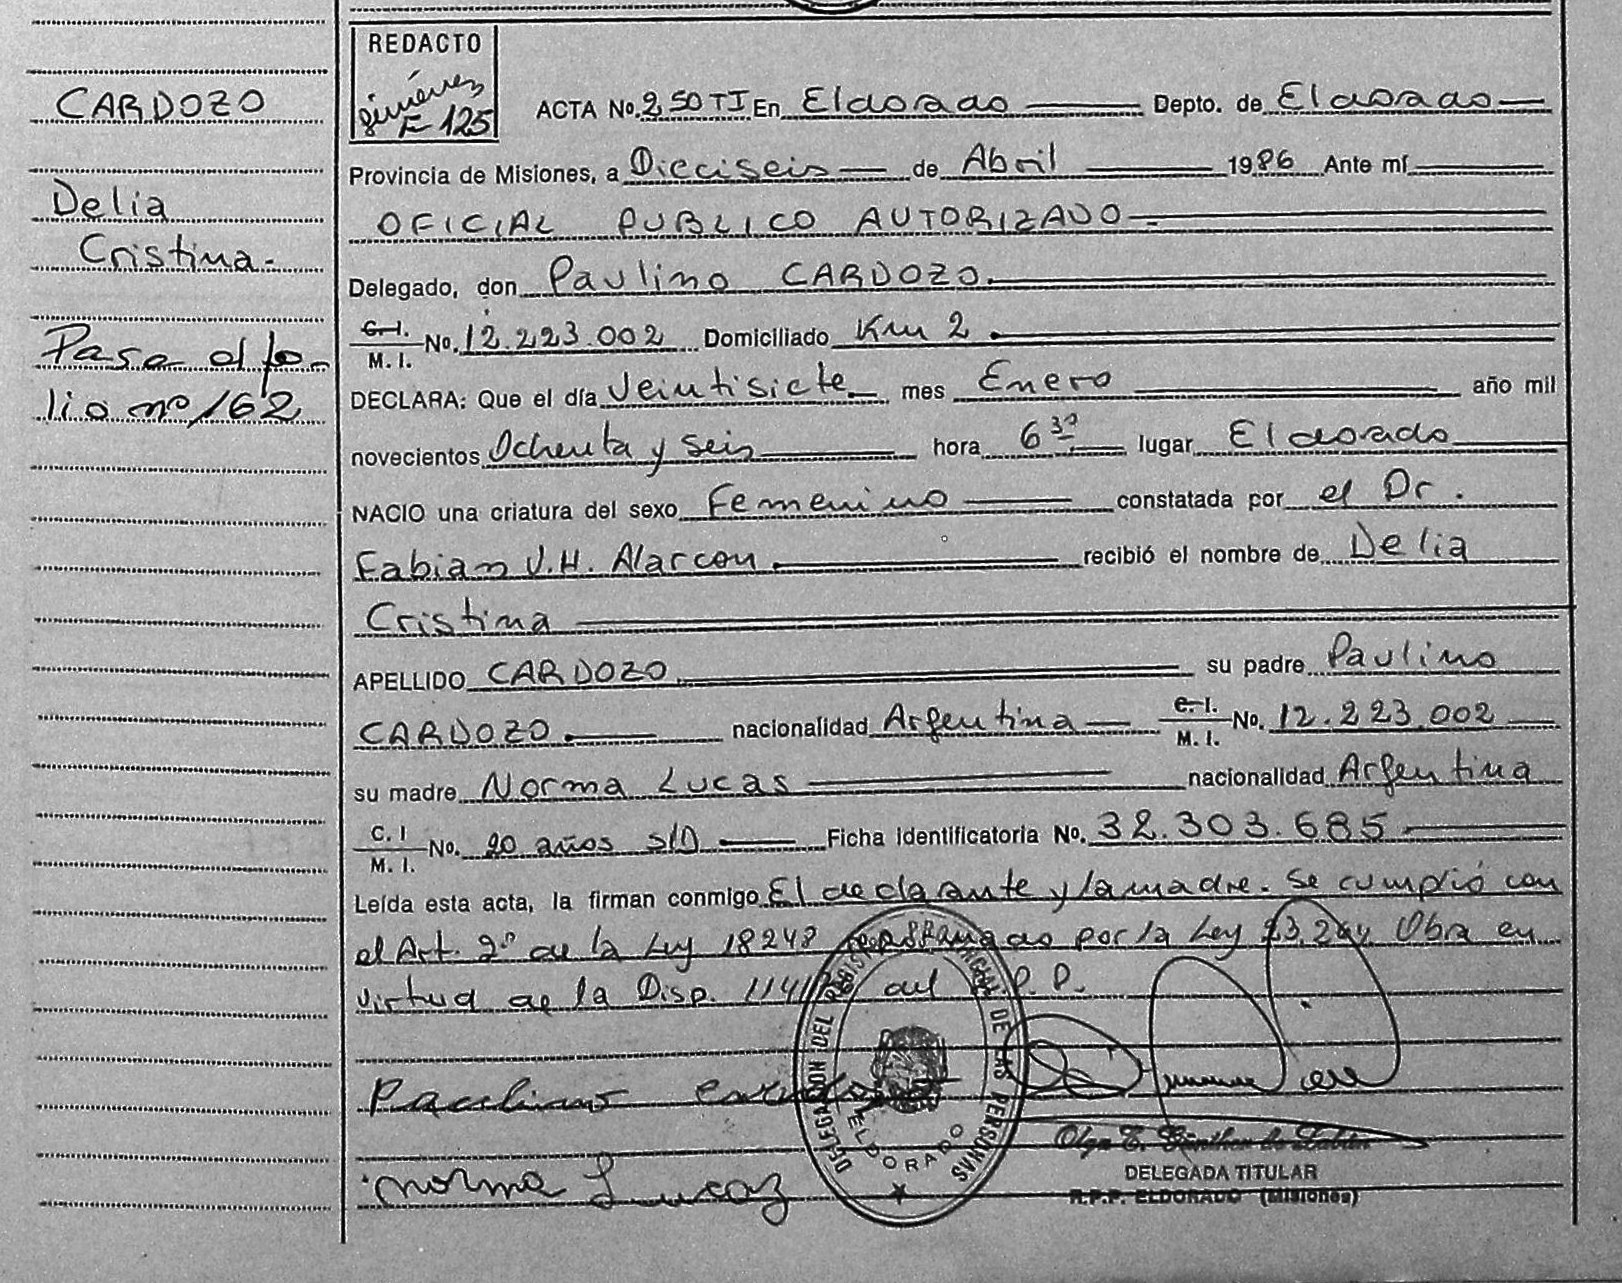 CARDOZO
Delia
Cristina.-
Pase al fo-
lio nº 162
REDACTO
Giménez
F 125
ACTA No. 250 TI En Eldorado Depto. de Eldorado
Provincia de Misiones, a Dieciseis de Abril 1986 Ante mí
OFICIAL PUBLICO AUTORIZADO
Delegado, don Paulino CARDOZO.
C. I. / M. I. No. 12.223.002 Domiciliado Km 2.
DECLARA: Que el día Veintisiete mes Enero año mil
novecientos Ochenta y seis hora 6 30 lugar Eldorado
NACIO una criatura del sexo Femenino constatada por el Dr.
Fabian J.H. Alarcon. recibió el nombre de Delia
Cristina
APELLIDO CARDOZO su padre Paulino
CARDOZO. nacionalidad Argentina C. I. / M. I. No. 12.223.002
su madre Norma Lucas nacionalidad Argentina
C. I / M. I. No. 20 años S/D Ficha Identificatoria No. 32.303.685.
Leída esta acta, la firman conmigo El declarante y la madre. Se cumplió con
el Art. 2º de la Ley 18248 por la Ley 23.264 Obra en
virtud de la Disp. del P.P.
Paulino
Norma Lucaz
DELEGACION DEL REGISTRO PROVINCIAL DE LAS PERSONAS
ELDORADO
DELEGADA TITULAR
R.P.P. ELDORADO (Misiones)